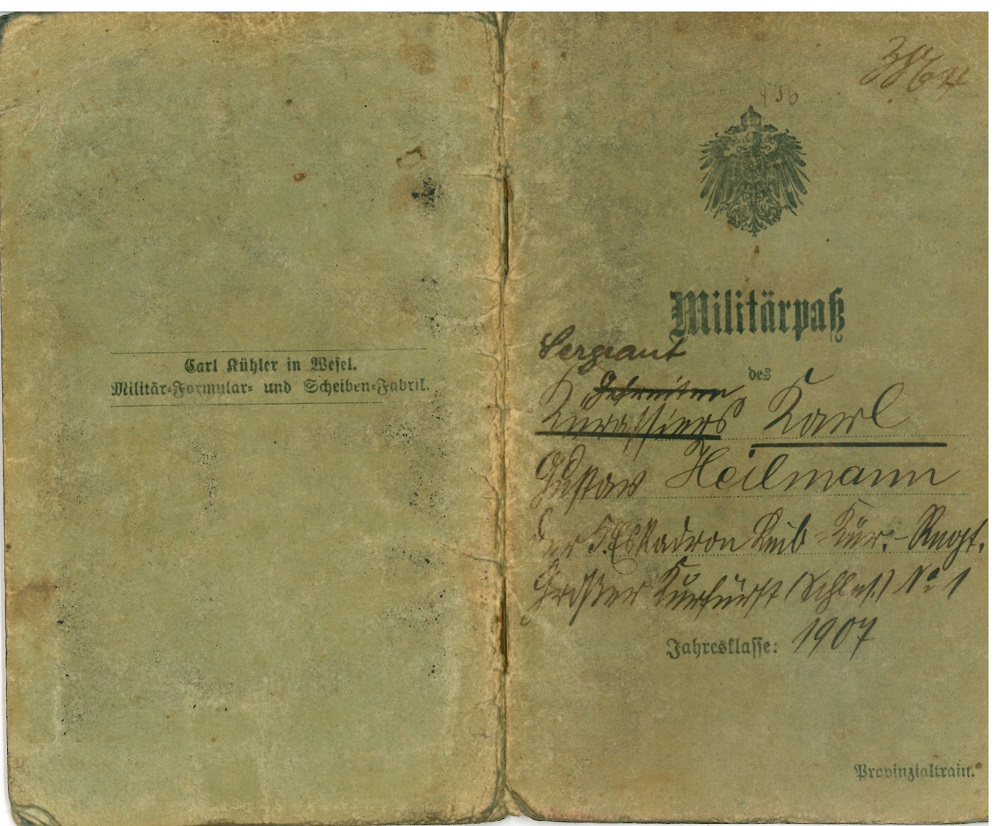 Carl Kühler in Wesel.
Militär-Formular- und Scheiben-Fabrik.
436
Militärpaß
Sergeant
des
Gefreiten
Kürassiers Karl
Gustav Heilmann
der 5. Eskadron Leib-Kür.-Regt.
Großer Kurfürst (Schles.) No 1
Jahresklasse: 1907
Provinzialtrain.